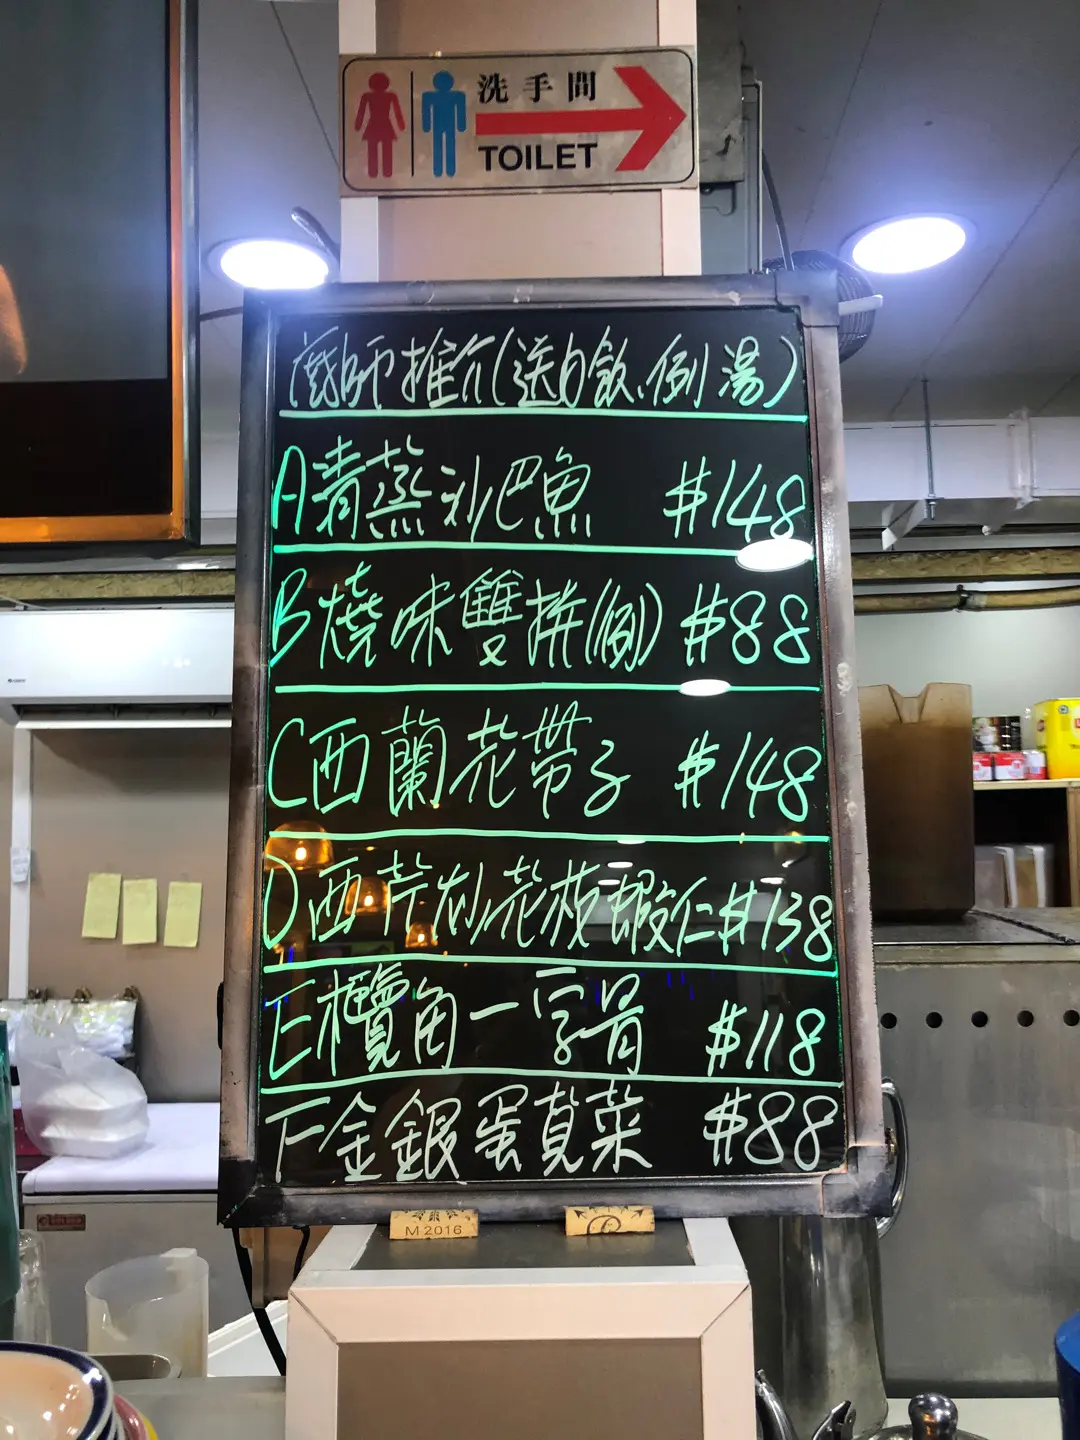 洗手間
TOILET
廚師推介(送自飲、例湯)
A清蒸沙巴魚 $148
B燒味雙拼(例) $88
C西蘭花帶子 $148
D西芹炒花枝蝦仁$138
E欖角一字骨 $118
F金銀蛋莧菜 $88
M2016